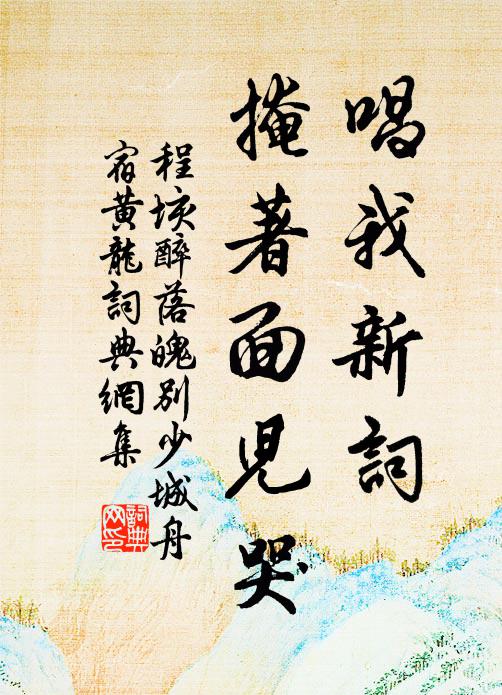 唱我新詞
掩著面兒哭
程垓醉落魄別少城舟
宿黃龍詞典網集
詞典
网印